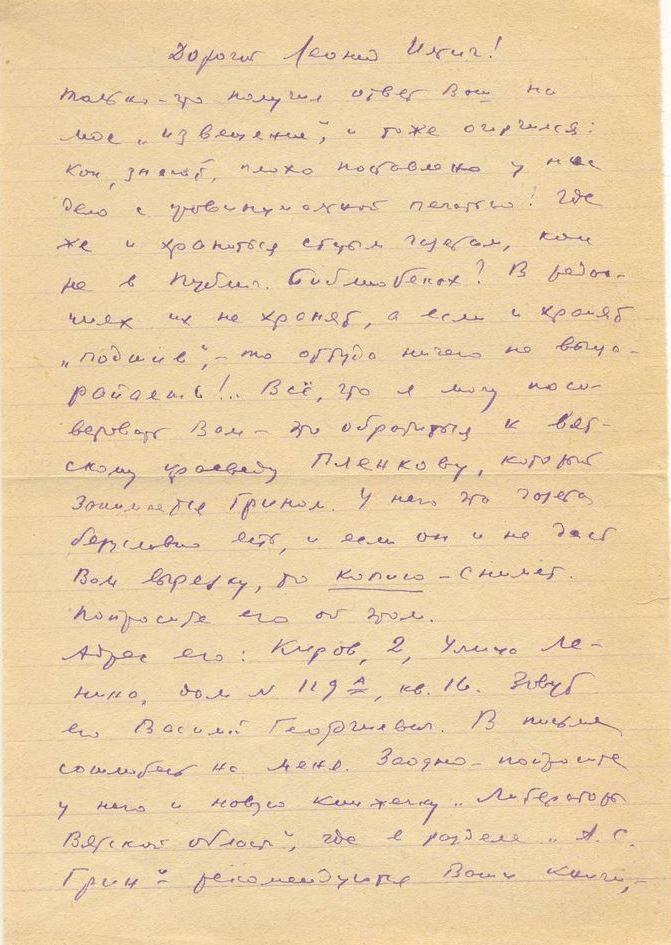 Дорогой Леонид Ильич!
Только-что получил ответ Ваш на
мое „извещение“, и тоже огорчился:
как, значит, плохо поставлено у нас
дело с провинциальной печатью! Где
же и храниться старым газетам, как
не в Публич. Библиотеках? В редак-
циях их не хранят, а если и хранят
„подшив“, – то оттуда ничего не выца-
рапаешь!.. Всё, что я могу посо-
ветовать Вам – это обратиться к вят-
скому краеведу Пленкову, который
занимается Грином. У него эта газета
безусловно есть, и если он и не даст
Вам вырезку, то копию – снимет.
Попросите его об этом.
Адрес его: Киров, 2, Улица Ле-
нина, дом N 119 А, кв. 16. Зовут
его Василий Георгиевич. В письме
сошлитесь на меня. Заодно – попросите
у него и новую книжечку „Литераторы
Вятской области“, где в разделе „А. С.
Грин“ – рекомендуются Ваши книги, –